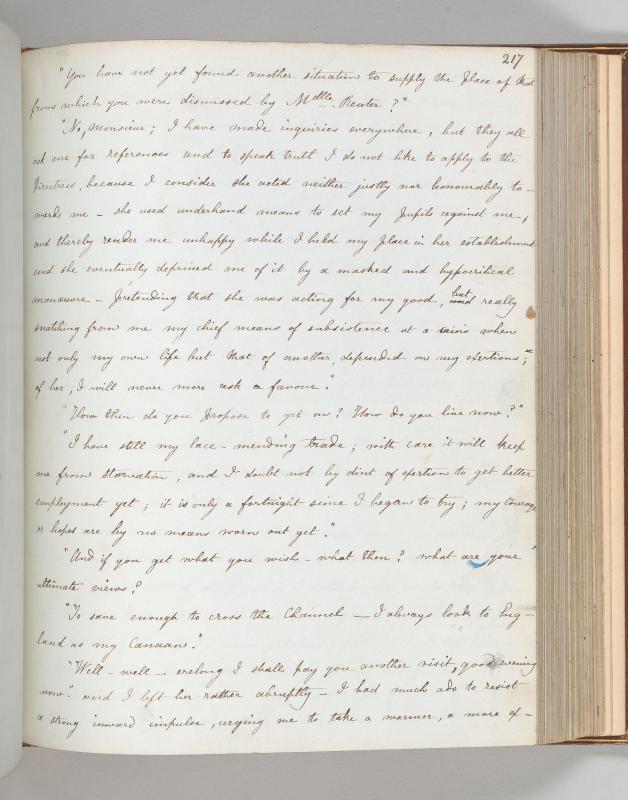 217
"You have not yet found another situation to supply the place of that
from which you were dismissed by Mdlle. Reuter?"
"No, Monsieur; I have made inquiries everywhere, but they all
ask me for references and to speak truth I do not like to apply to the
Directress, because I consider she acted neither justly nor honourably to-
wards me - she used underhand means to set my pupils against me,
and thereby render me unhappy while I held my place in her establishment
and she eventually deprived me of it by a masked and hypocritical
manœuvre - pretending that she was acting for my good, and but really
snatching from me my chief means of subsistence at a crisis when
not only my own life but that of another, depended on my exertions;"
of her, I will never more ask a favour."
"How then do you propose to get on? How do you live now?"
"I have still my lace-mending trade; with care it will keep
me from starvation, and I doubt not by dint of exertion to get better
employment yet; it is only a fortnight since I began to try; my courage
or hopes are by no means worn out yet."
"And if you get what you wish - what then? what are your
ultimate views?
"To save enough to cross the Channel - I always look to Eng-
land as my Canaan."
"Well - well - erelong I shall pay you another visit, good evening
now." and I left her rather abruptly - I had much ado to resist
a strong inward impulse, urging me to take a warmer, a more ex-